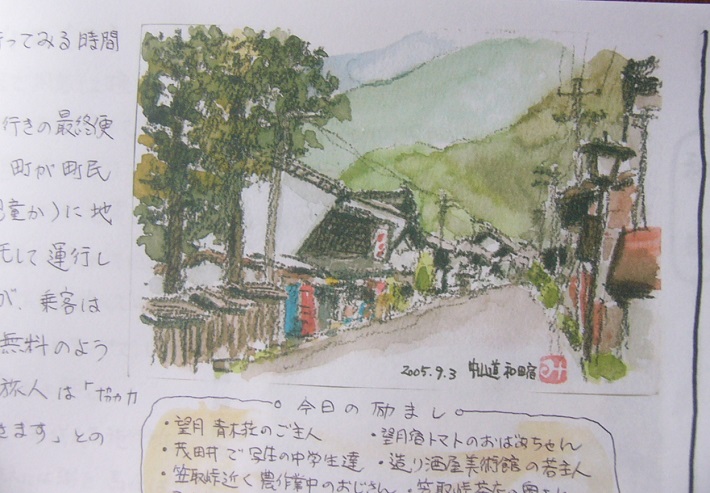 行ってみる時間
行きの最終便
町が町民
童か)に地
して運行し
が、乗客は
無料のよう
旅人は「協力
きます」との
2005.9.3 中山道 和田宿
み
今日の励まし
・望月 青木荘のご主人
・望月宿トマトのおばあちゃん
・茂田井で写生の中学生達
・造り酒屋美術館の若主人
・笠取峠近く農作業中のおじさん
・笠取峠茶屋の奥さん